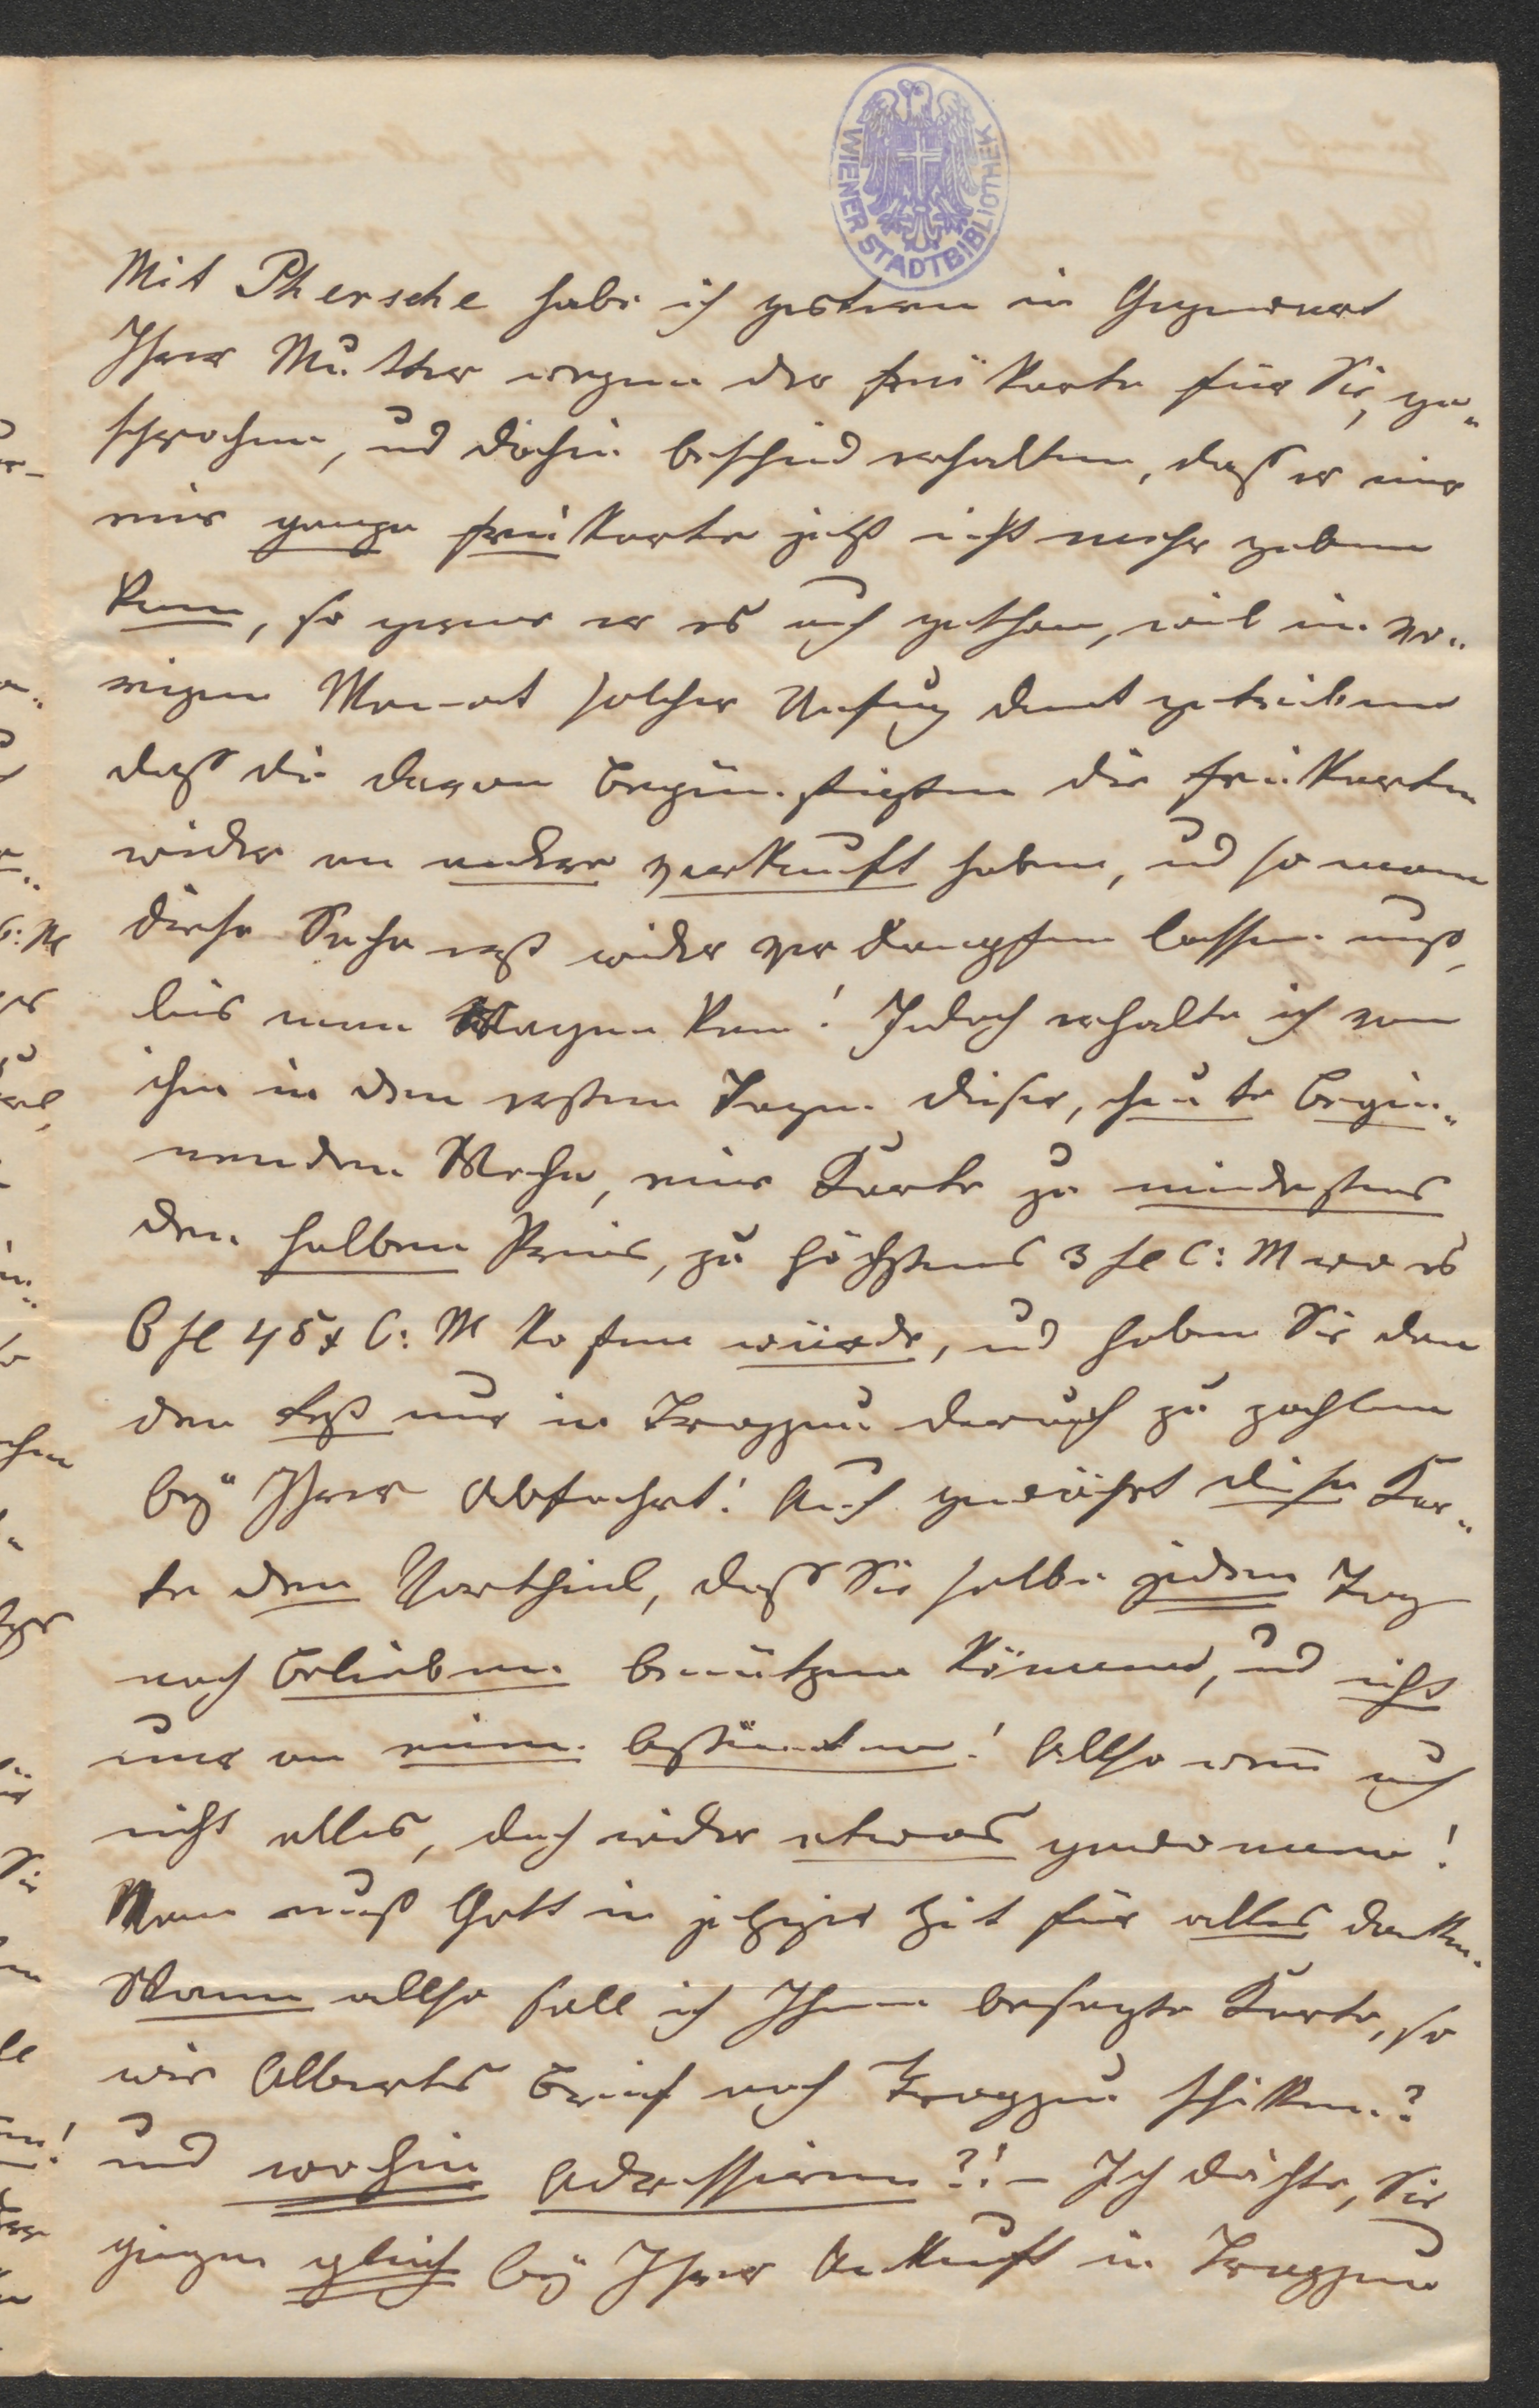 WIENER STADTBIBLIOTHEK
Mit Phersche habe ich gestern in Gegenwart
Ihrer Mutter wegen der freikarte für Sie, ge„
sprochen, und dahin bescheid erhalten, daß er mir
eine ganze freikarte jetzt nicht mehr geben
kann, so gerne er es auch gethan, weil im vo„
rigen Monat solcher Unfug damit getrieben
daß die davon Begünstigten die freikarten
wieder an andere verkauft haben, und so man
diese Sache erst wieder verdampfen lassen muß,
bis man Wagen kann! Jedoch erhalte ich von
ihm in den ersten Tagen dieser, heute Begin„
nenden Woche, eine Karte zu mindestens
den halben Preis, zu höchstens 3 fl C: M wo es
6 fl 45 x C: M kosten würde, und haben Sie dan
den Rest nur in Troppau darauf zu zahlen
bey Ihrer Abfahrt! Auch gewährt diese Kar„
te den Vortheil, daß Sie selbe jeden Tag
nach Belieben benützen können, und nicht
nur an einen bestimten! Allso weñ auch
nicht alles, doch wieder etwas gewonnen!
Man muß Gott in jetziger Zeit für alles danken.
Wann allso soll ich Ihnen besagte Karte, so
wie Alberts Brief nach Troppau schikken?
und wohin Adressieren?! – Ich dächte, Sie
giengen gleich bey Ihrer Ankunft in Troppau